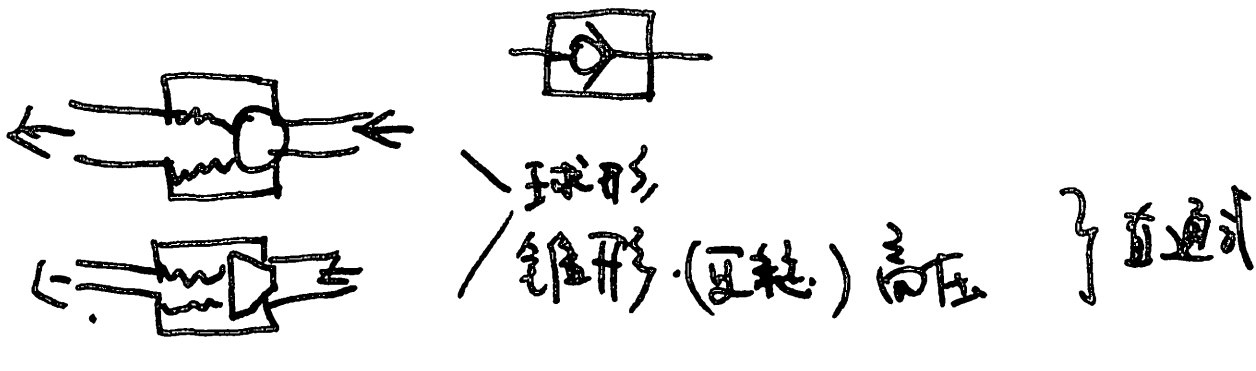 球形
锥形.(更稳.)高压
直通式